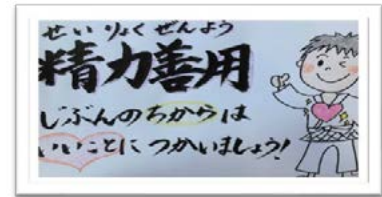 せいりょくぜんよう
精力善用
じぶんのちからは
いいことにつかいましょう!